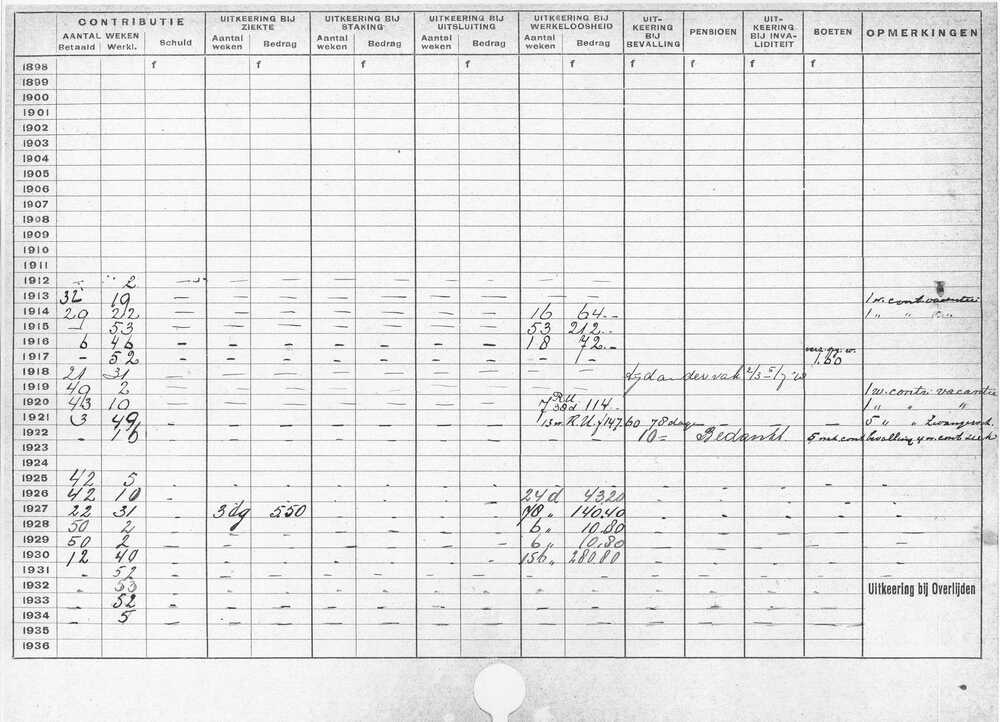 CONTRIBUTIE UITKEERING BIJ ZIEKTE UITKEERING BIJ STAKING UITKEERING BIJ UITSLUITING UITKEERING BIJ WERKELOOSHEID UIT-KEERING BIJ BEVALLING PENSIOEN UIT-KEERING BIJ INVA-LIDITEIT BOETEN OPMERKINGEN
AANTAL WEKEN Betaald Werkl. Schuld Aantal weken Bedrag Aantal weken Bedrag Aantal weken Bedrag Aantal weken Bedrag
1898 f f f f f f f f f
1899
1900
1901
1902
1903
1904
1905
1906
1907
1908
1909
1910
1911
1912 - 2 - - - - - - - - -
1913 32 19 - - - - - - - - - 1 w. cont vacantie
1914 29 22 - - - - - - - 16 64.- 1 " " "
1915 - 53 - - - - - - - 53 212.-
1916 6 46 - - - - - - - 18 72.-
1917 - 52 - - - - - - - - 1 - 1.60
1918 21 31 - - - - - - -
1919 49 2 - - - - - - - 1 w. contri vacantie
1920 43 10 - - - - - - - 7 R.U 38d 114.- 1 " " "
1921 3 49 - - - - - - - 13 w. R.U. f 147.60 78 dage - - - 5 " "
1922 - 16 - - - - - - - - - 10= Bedankt. 5 mk cont bevalling 4 w. cont ziek
1923
1924
1925 42 5 - - - - - - - - - - - - - -
1926 42 10 - - - - - - - 24 d 43.20 - - - - -
1927 22 31 - 3 dg 5.50 - - - - 78 " 140.40 - - - - -
1928 50 2 - - - - - - - 6 " 10.80 - - - - -
1929 50 2 - - - - - - - 6 " 10.80 - - - - -
1930 12 40 - - - - - - - 156 " 280.80 - - - - -
1931 - 52 - - - - - - - - - - - - -
1932 - 53 - - - - - - - - - - - - -
Uitkeering bij Overlijden
1933 - 52 - - - - - - - - - - - - -
1934 - 5 - - - - - - - - - - - - -
1935
1936